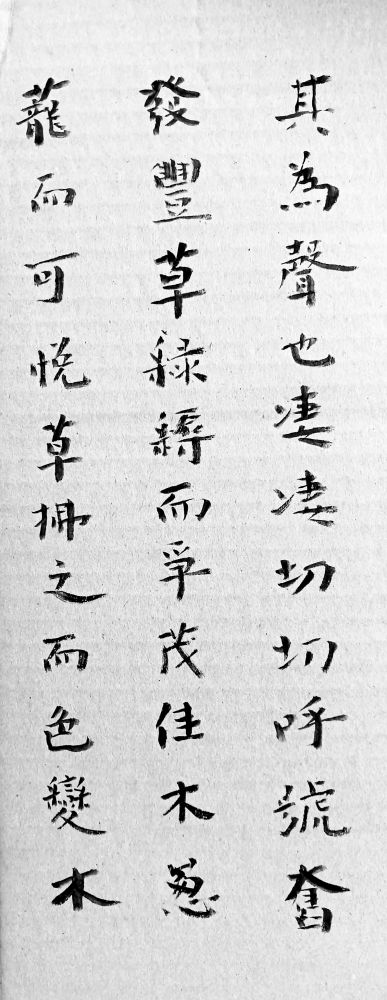 其為聲也淒淒切切呼號奮
發豐草綠縟而爭茂佳木葱
蘢而可悅草拂之而色變木